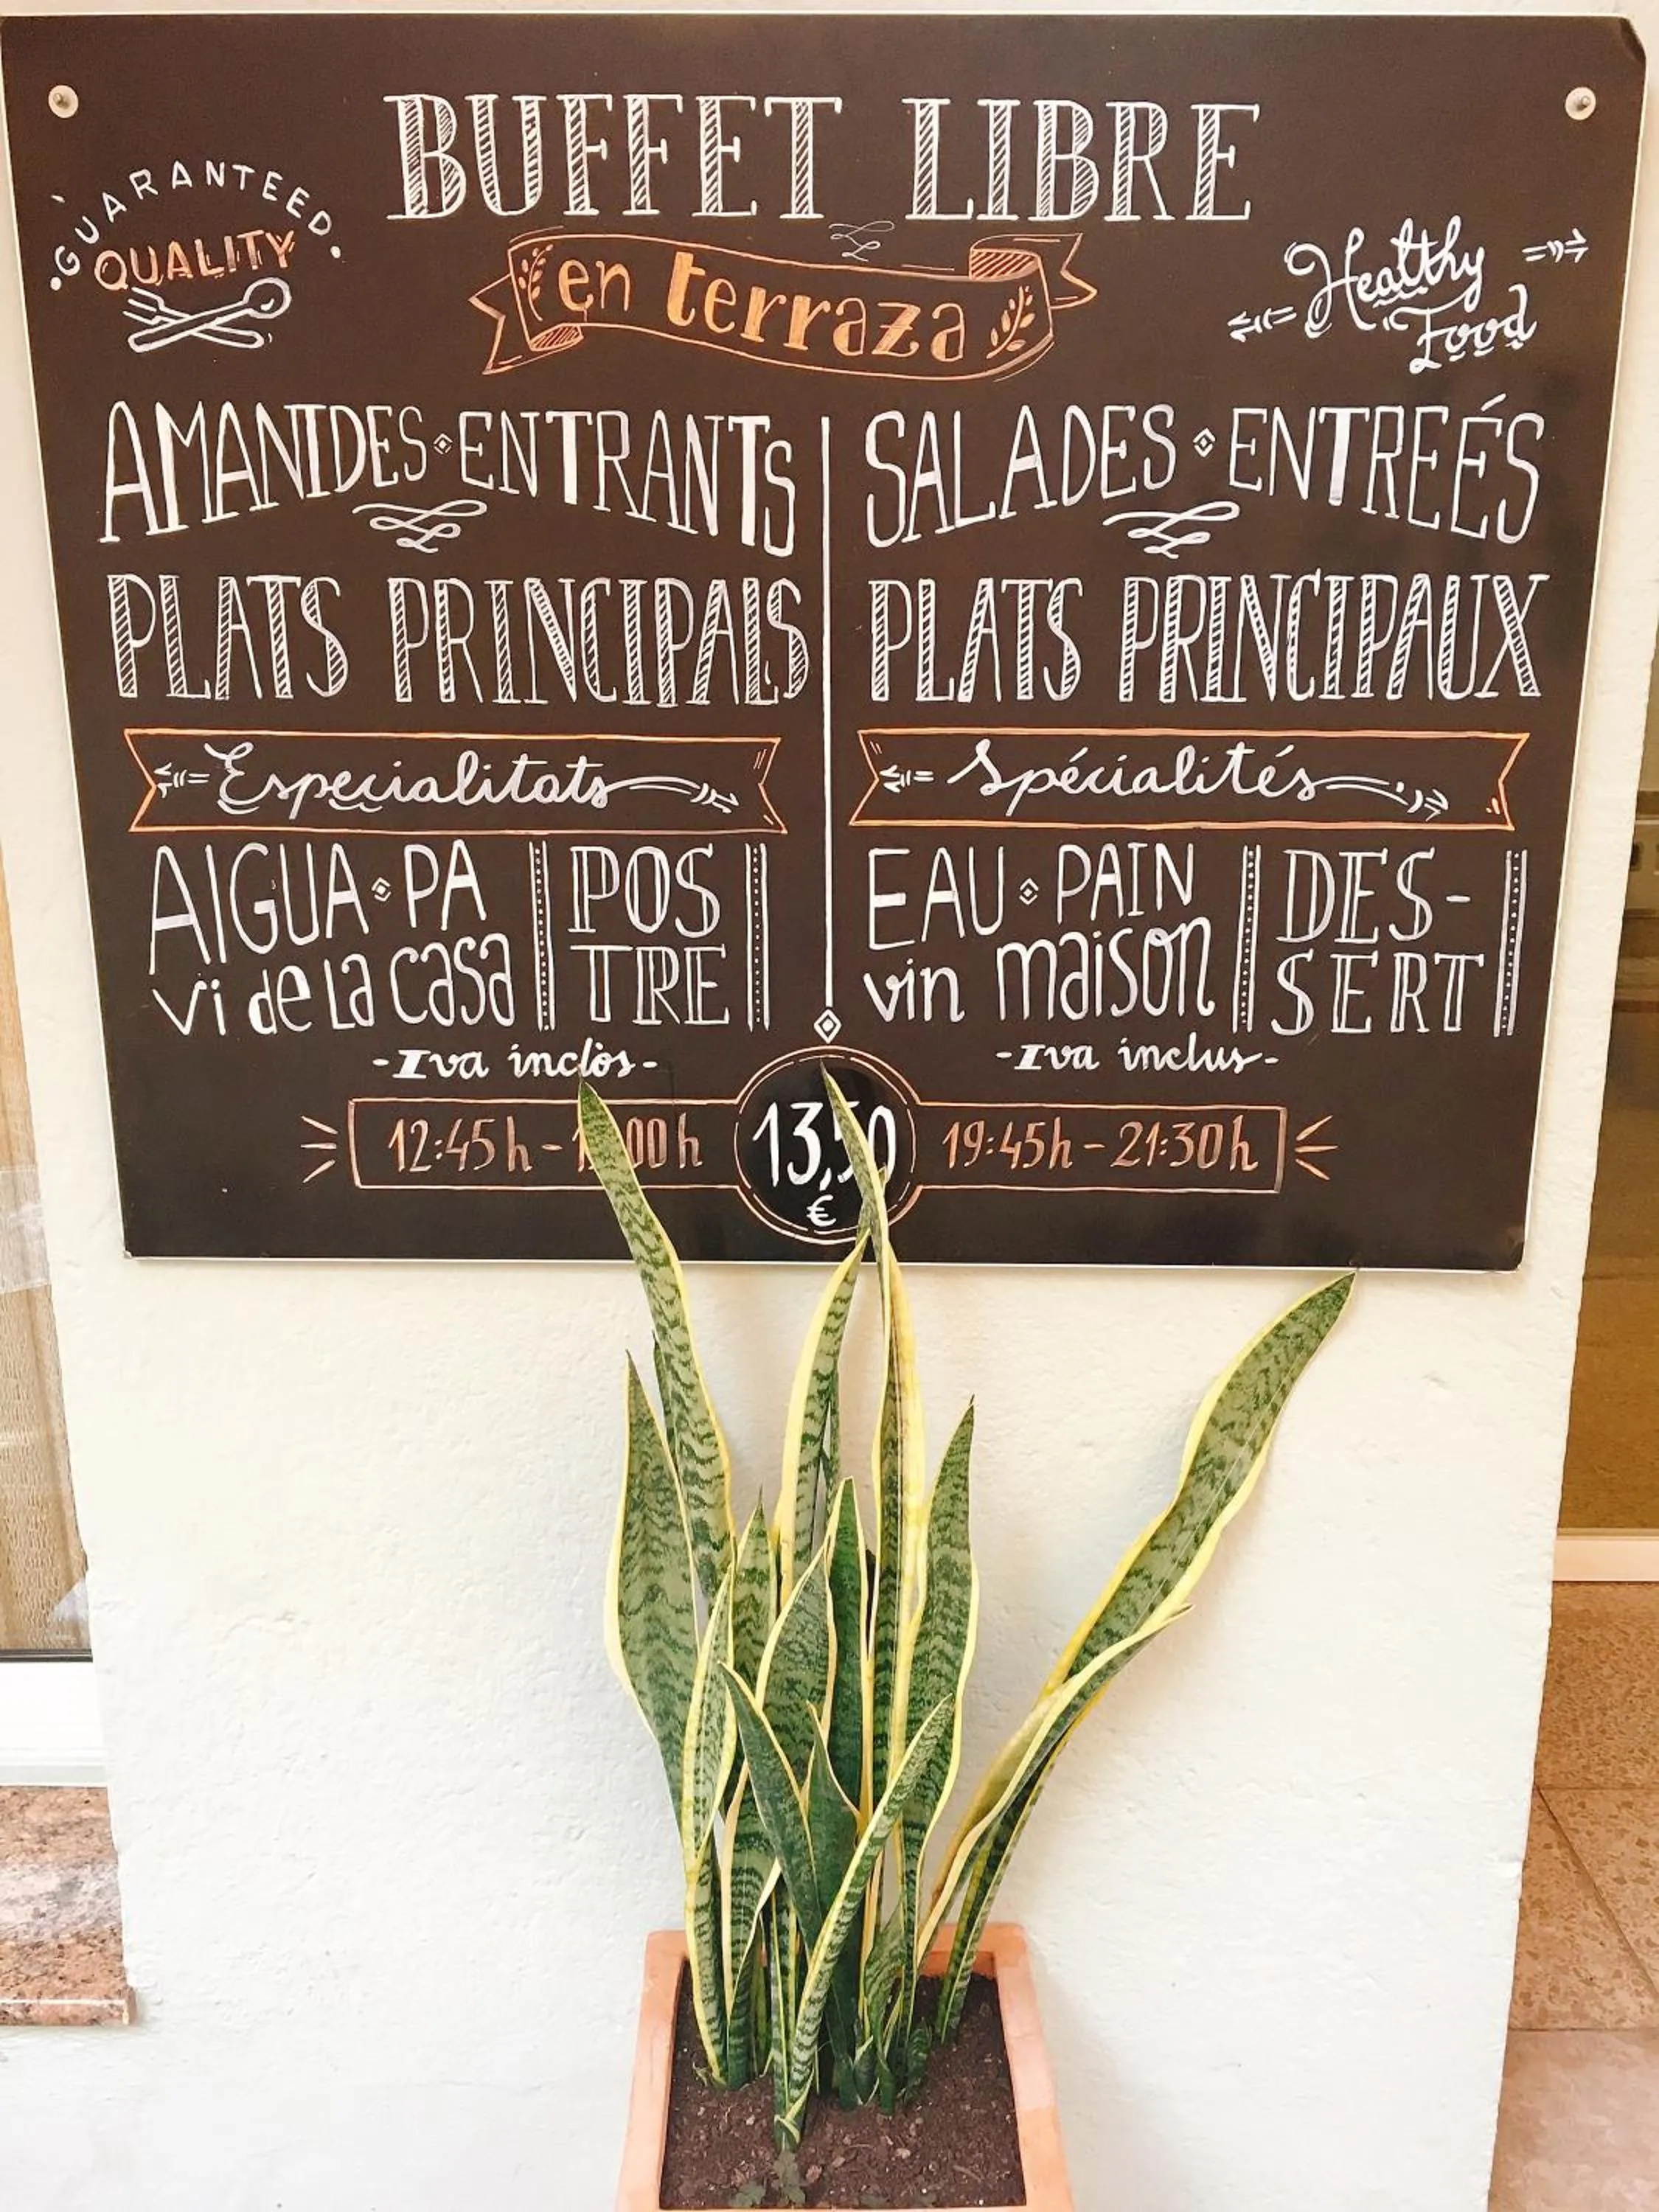 BUFFET LIBRE
en terraza
GUARANTEED
QUALITY
Healthy
Food
AMANIDES ENTRANTS
PLATS PRINCIPALS
Especialitats
AIGUA PA
vi de la casa
POS
TRE
-Iva inclòs-
SALADES ENTREÉS
PLATS PRINCIPAUX
Spécialités
EAU PAIN
vin maison
DES-
SERT
-Iva inclus-
12:45h -
13,50
€
19:45h - 21:30h